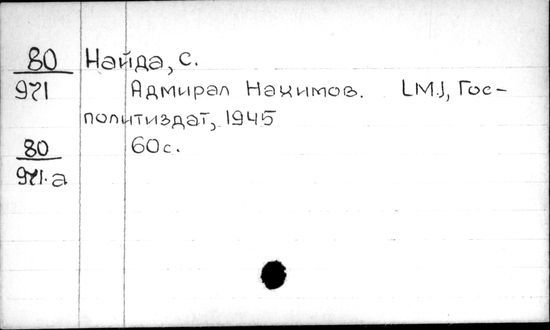 80 Найда, С.
971 Адмирал Нахимов. [М.], Гос-
политиздат, 1945
80 60с.
971-а